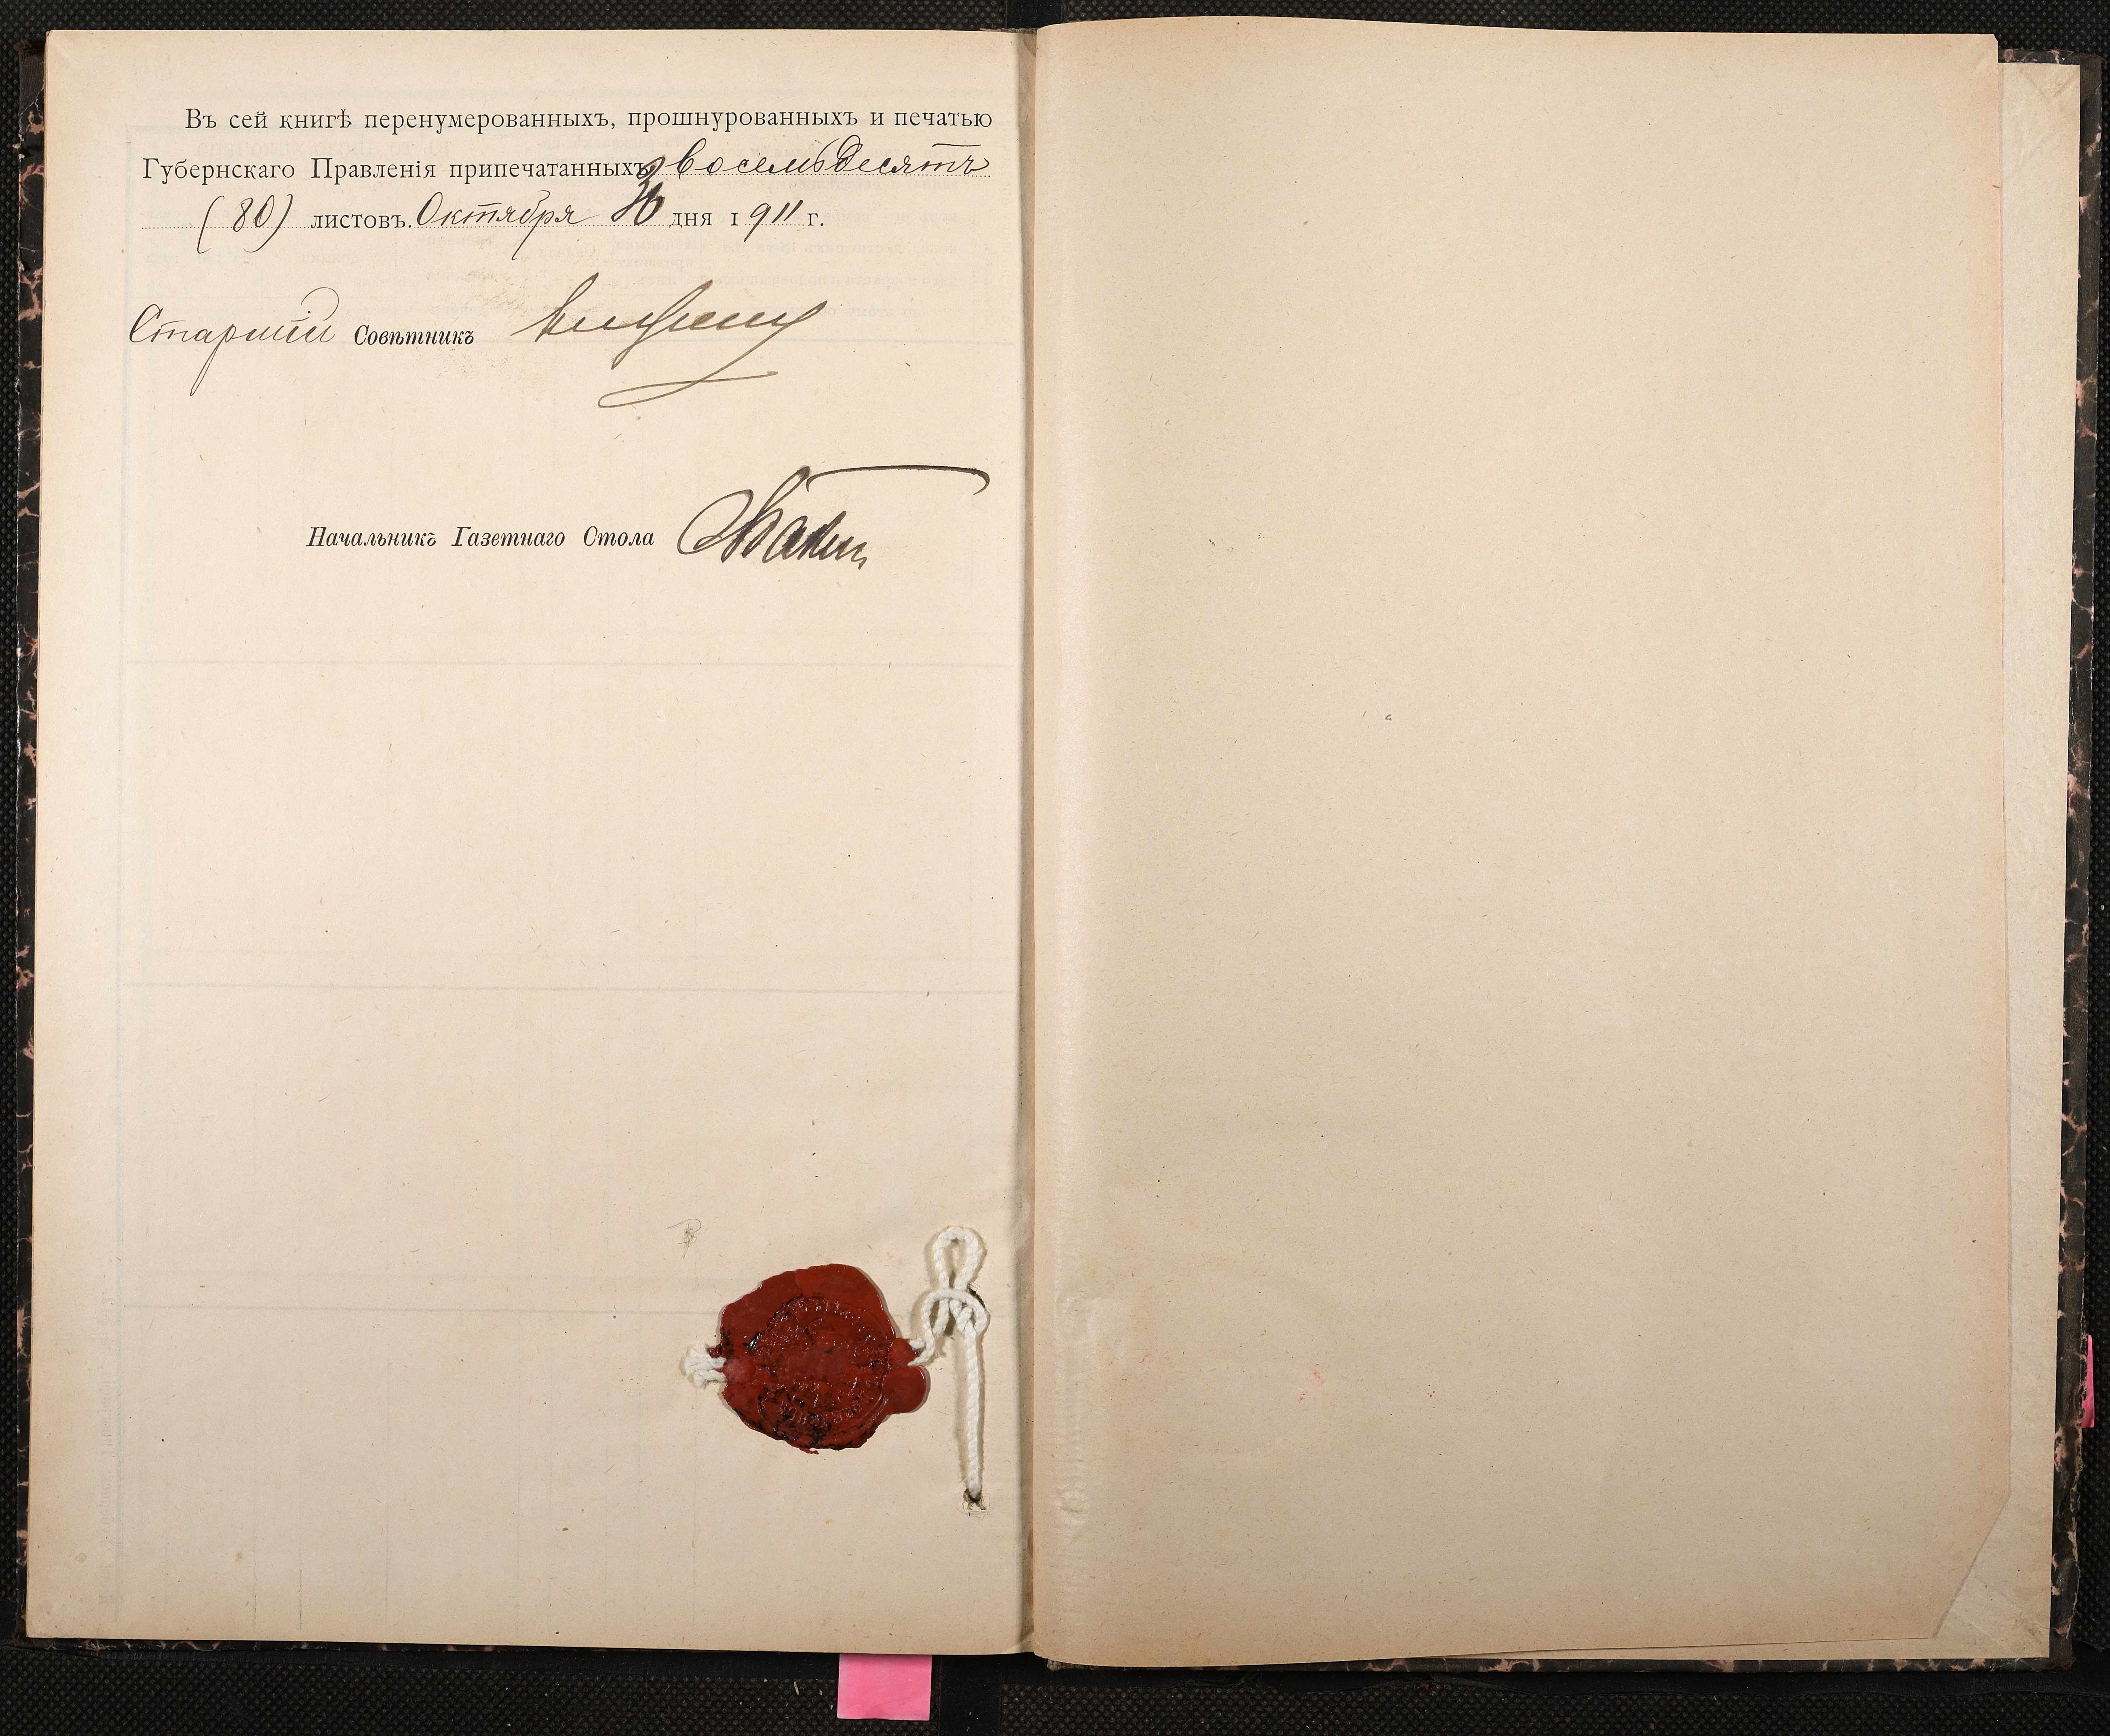 Въ сей книгѣ перенумерованныхъ, прошнурованныхъ и печатью
Губернскаго Правленія припечатанныхъ восемьдесятъ
(80) листовъ. Октября 30 дня 1911 г.
Старшій Совѣтникъ
Начальникъ Газетнаго Стола